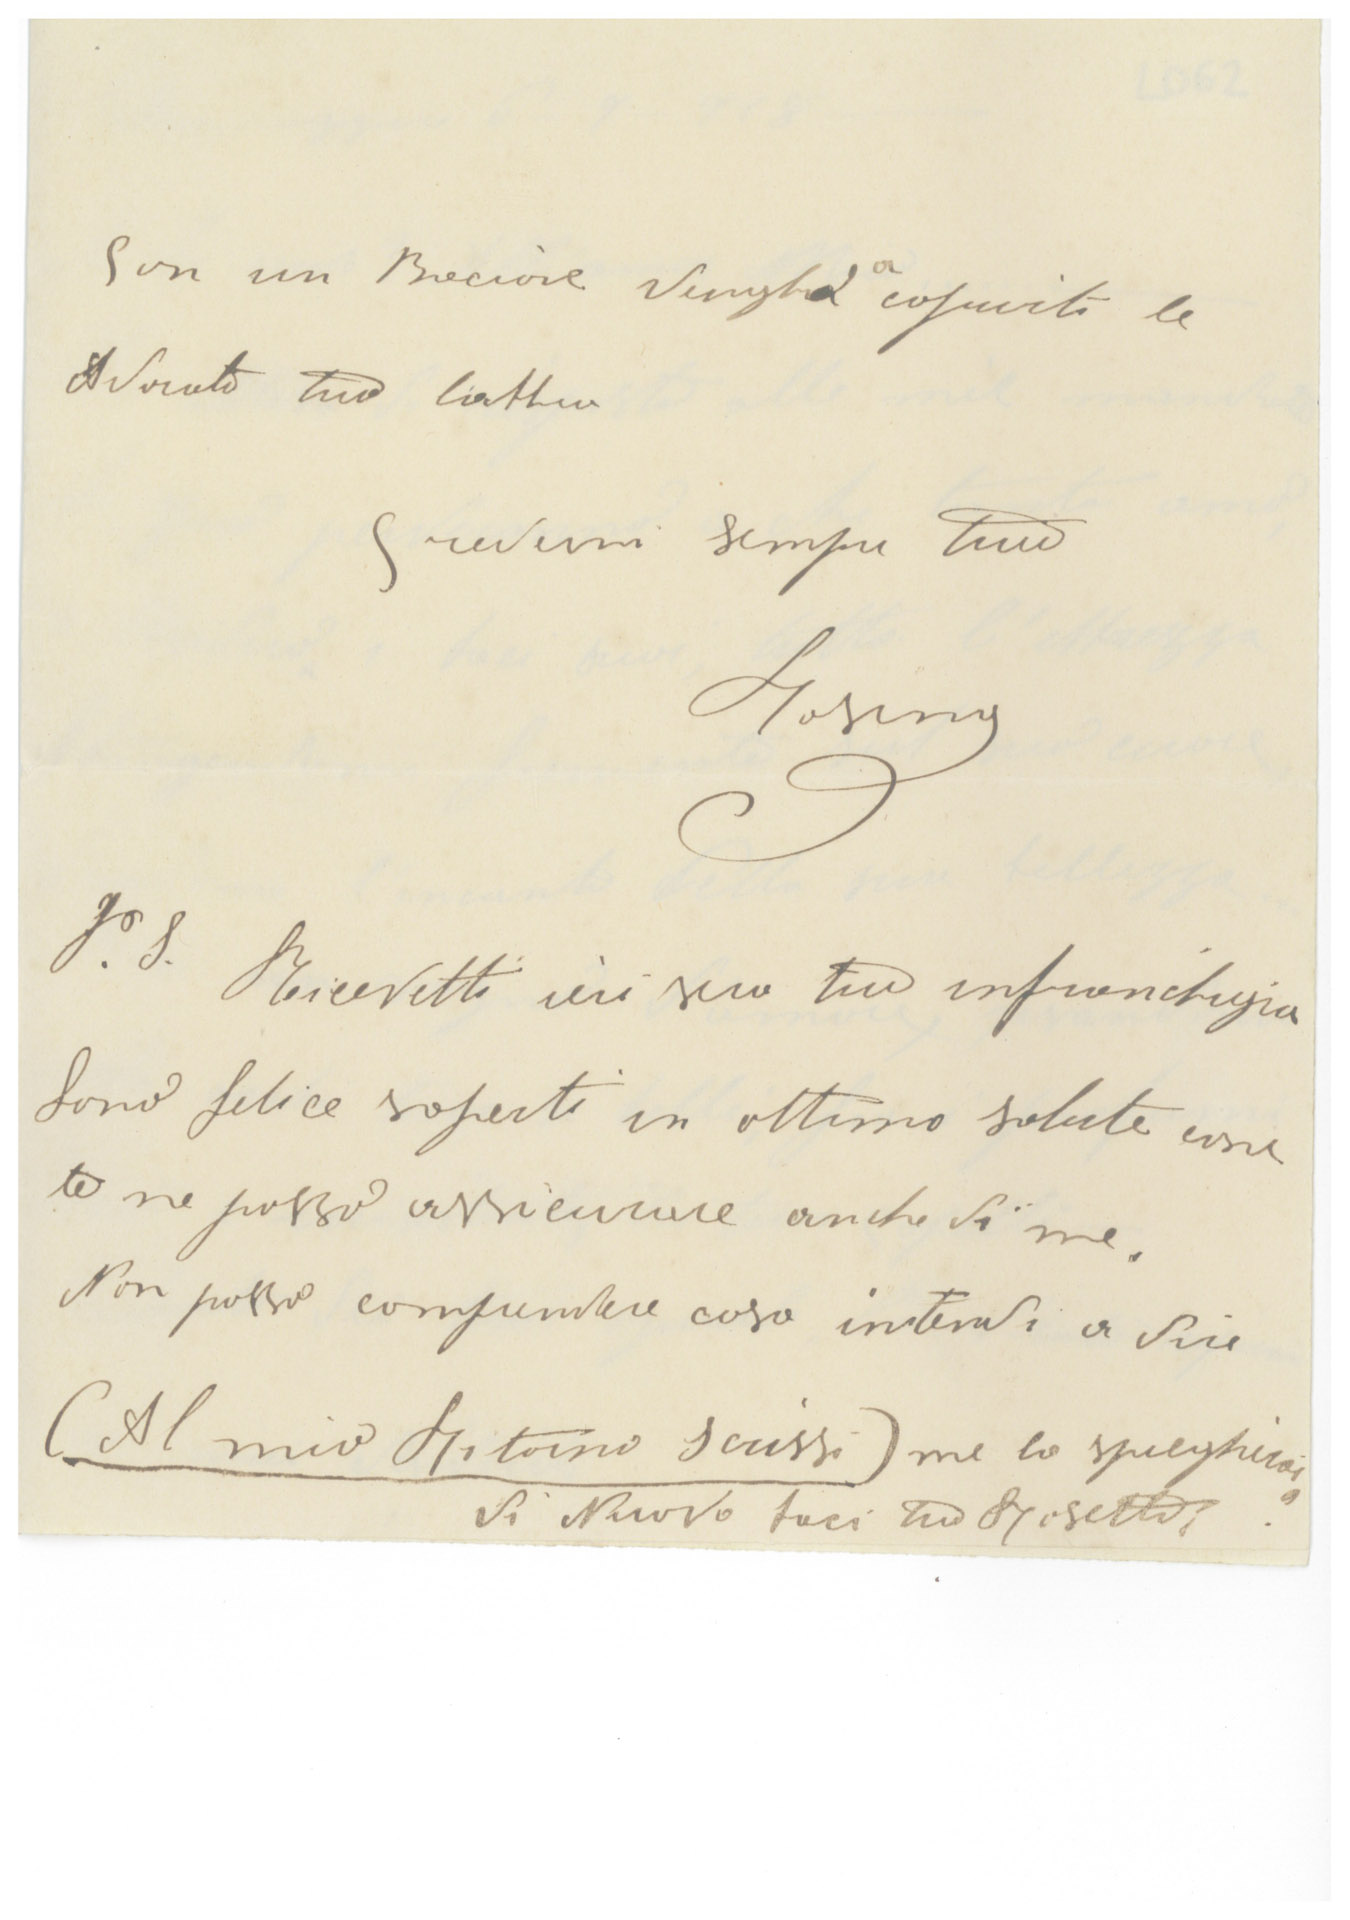 Con un Baccione venghà a coprirti le
Adorate tue labbra
Credemi sempre tuo
Gosing
P.S. Ricevetti ieri sera tuo in franchigia
Sono felice saperti in ottimo salute cose
te ne posso assicurare anche di me.
Non posso comprendere coso intendi a dire
(Al mio Ritorno scrissi) me lo spieghirai?
di Nuovo baci tuo